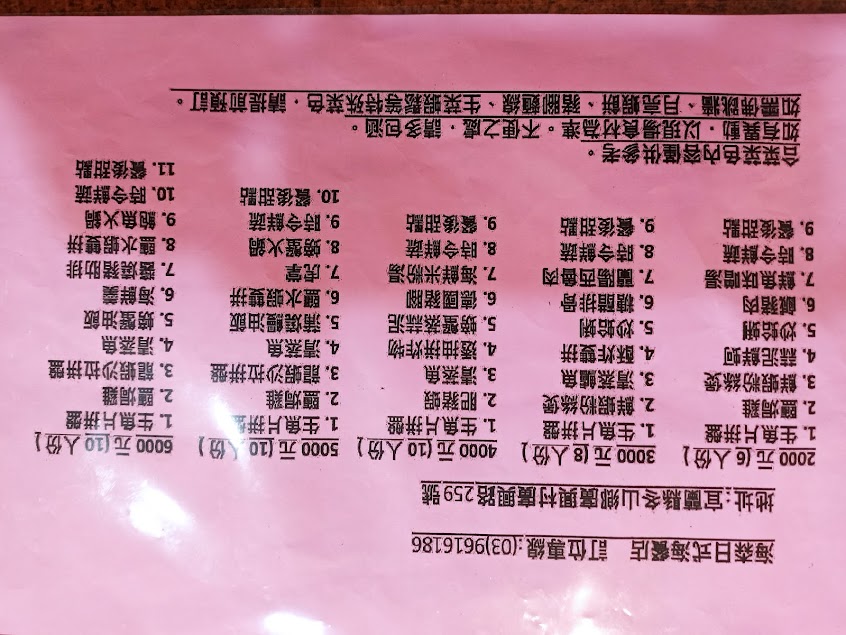 海森日式海餐店 訂位專線:(03)9616186
地址:宜蘭縣冬山鄉廣興村廣興路259號
2000元(6人份)
1. 生魚片拼盤
2. 鹽焗雞
3. 鮮蝦粉絲煲
4. 蒜泥鮮蚵
5. 炒蛤蜊
6. 鹹豬肉
7. 鮮魚味噌湯
8. 時令鮮蔬
9. 餐後甜點
3000元(8人份)
1. 生魚片拼盤
2. 鮮蝦粉絲煲
3. 清蒸鱸魚
4. 酥炸雙拼
5. 炒蛤蜊
6. 糖醋排骨
7. 蘭陽西魯肉
8. 時令鮮蔬
9. 餐後甜點
4000元(10人份)
1. 生魚片拼盤
2.
3. 清蒸魚
4. 拼炸物
5. 螃蟹蒸蒜泥
6. 德國豬腳
7. 海鮮米粉湯
8. 時令鮮蔬
9. 餐後甜點
5000元(10人份)
1. 生魚片拼盤
2. 鹽焗雞
3. 龍蝦沙拉拼盤
4. 清蒸魚
5. 蒲燒鰻油飯
6. 鹽水蝦雙拼
7. 虎掌
8. 螃蟹火鍋
9. 時令鮮蔬
10. 餐後甜點
6000元(10人份)
1. 生魚片拼盤
2. 鹽焗雞
3. 龍蝦沙拉拼盤
4. 清蒸魚
5. 螃蟹油飯
6. 海鮮羹
7. 醬燒豬肋排
8. 鹽水蝦雙拼
9. 鮑魚火鍋
10. 時令鮮蔬
11. 餐後甜點
合菜菜色內容僅供參考。
如有異動,以現場食材為準。不便之處,請多包涵。
如需佛跳牆、月亮蝦餅、豬腳麵線、生菜蝦鬆等特殊菜色,請提前預訂。